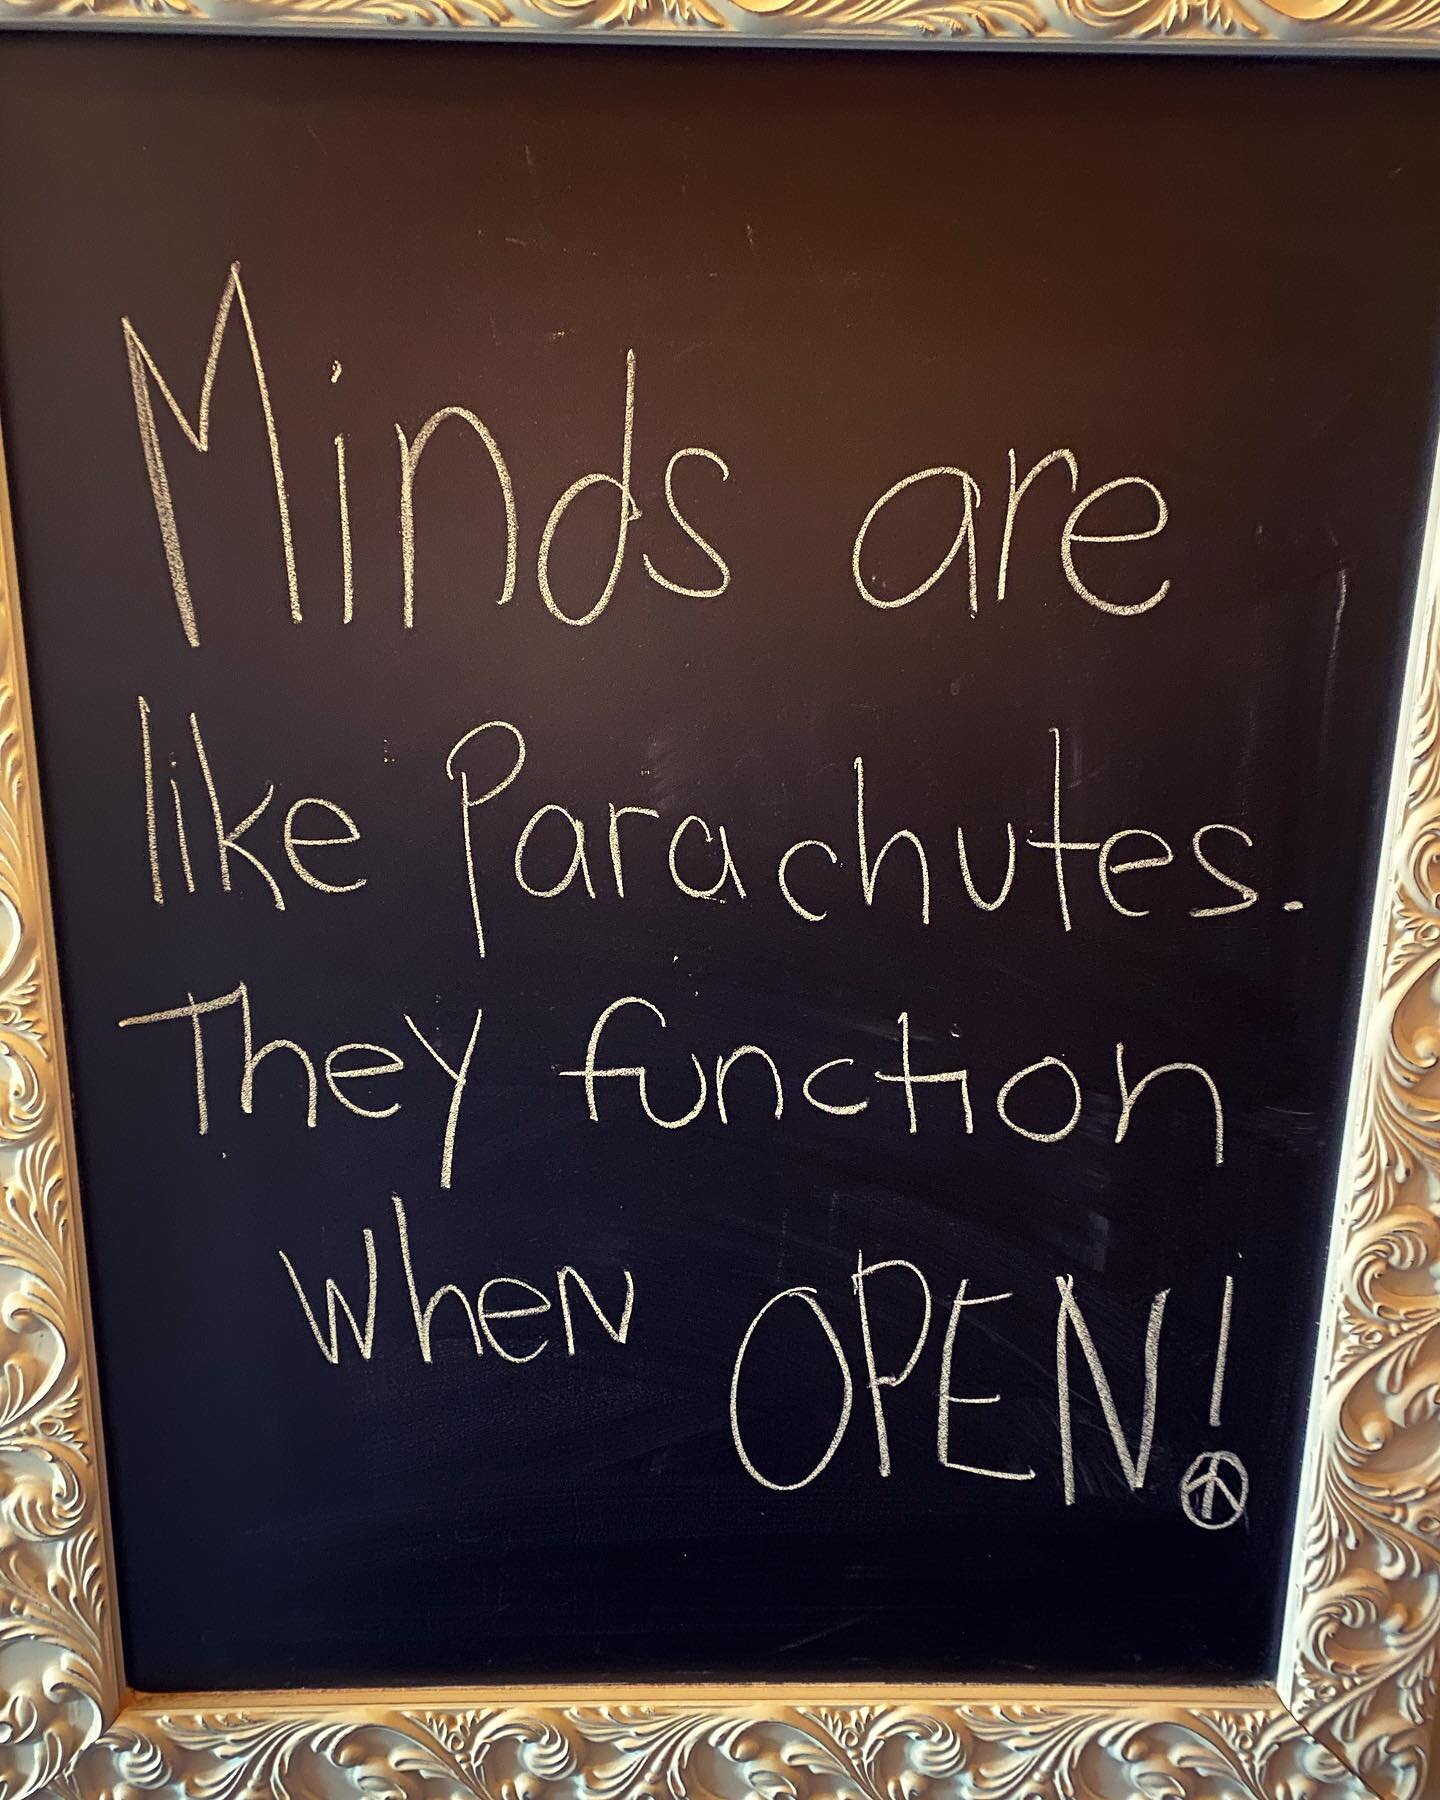 Minds are
like Parachutes.
They function
when OPEN!